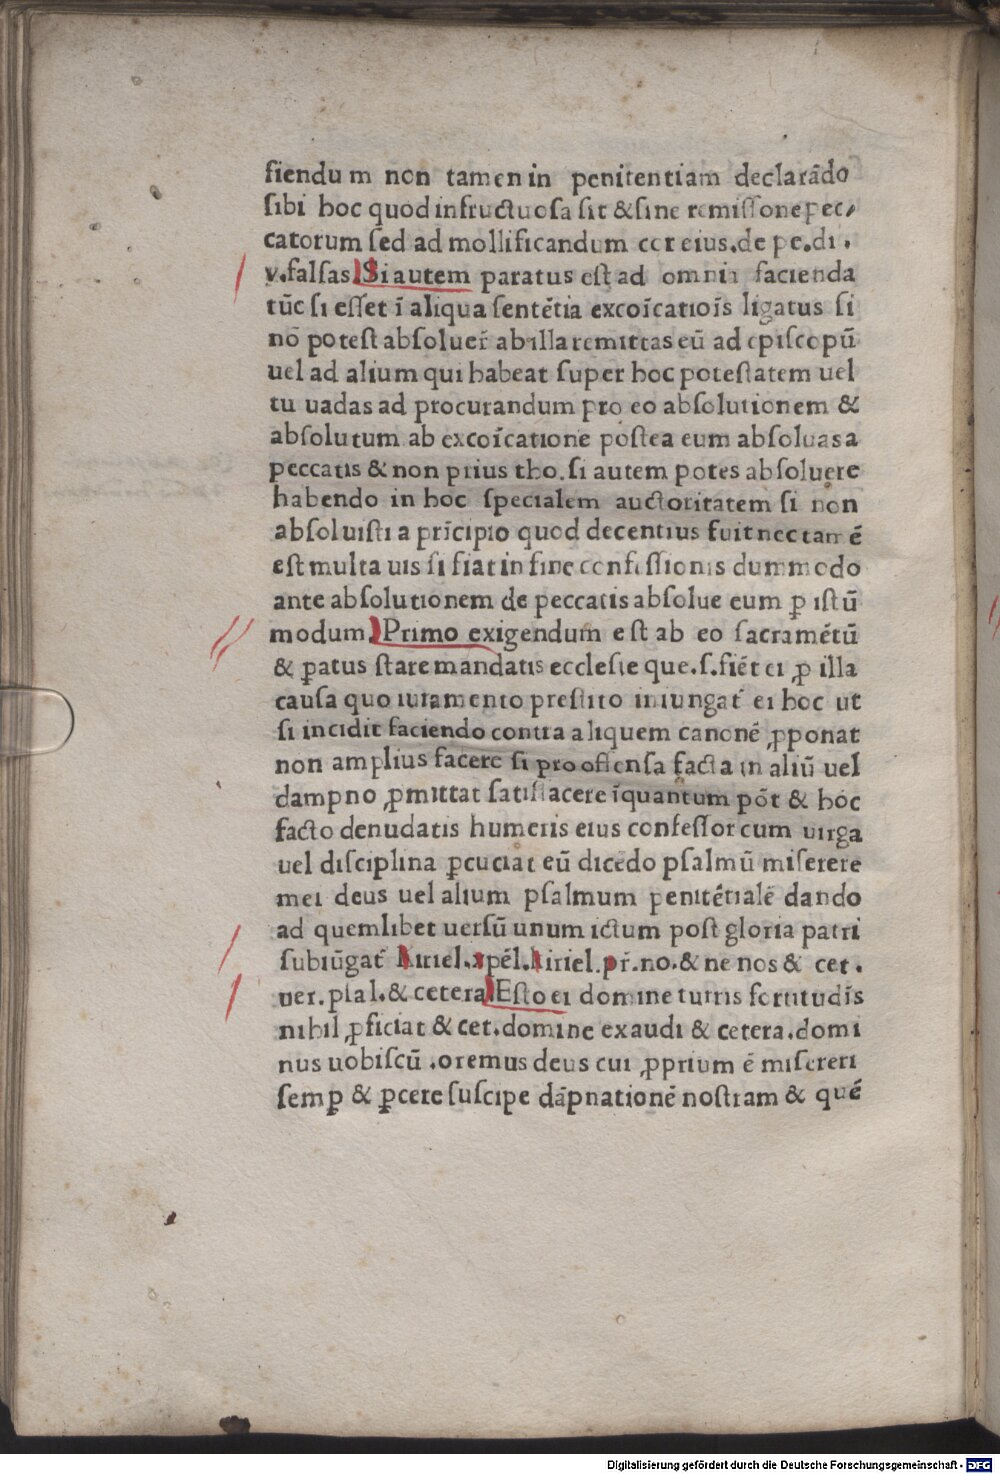 siendum non tamen in penitentiam declarãdo
sibi hoc quod infructuosa sit & sine remissione pec,
catorum sed ad mollificandum cor eius.de pe.di.
v.falsas Si autem paratus est ad omnia facienda
tũc si esset ĩ aliqua sentẽtia excoĩcatioĩs ligatus si
nõ potest absoluer̃ ab illa remittas eũ ad episcopũ
uel ad alium qui habeat super hoc potestatem uel
tu uadas ad procurandum pro eo absolutionem &
absolutum ab excoĩcatione postea eum absoluas a
peccatis & non prius tho.si autem potes absoluere
habendo in hoc specialem auctoritatem si non
absoluisti a prĩcipio quod decentius fuit nec tamẽ
est multa uis si fiat in fine confessionis dummodo
ante absolutionem de peccatis absolue eum ꝑ istũ
modum Primo exigendum est ab eo sacramẽtũ
& ꝑatus stare mandatis ecclesie que.s.fiẽt ei ꝓ illa
causa quo iuramento prestito iniungat̃ ei hoc ut
si incidit faciendo contra aliquem canonẽ ꝓponat
non amplius facere si pro offensa facta in aliũ uel
dampno ꝓmittat satisfacere ĩquantum põt & hoc
facto denudatis humeris eius confessor cum uirga
uel disciplina ꝑcuciat eũ dicẽdo psalmũ miserere
mei deus uel alium psalmum penitẽtialẽ dando
ad quemlibet uersũ unum ictum post gloria patri
subiũgat̃ kiriel.xpẽl.kiriel.pr̃.no.& ne nos & cet.
uer.psal.& cetera Esto ei domine turris fortitudĩs
nihil ꝓficiat & cet.domine exaudi & cetera.domi
nus uobiscũ.oremus deus cui ꝓprium ẽ misereri
semꝑ & ꝑcere suscipe dãpnationẽ nostram & quẽ
Digitalisierung gefördert durch die Deutsche Forschungsgemeinschaft - DFG